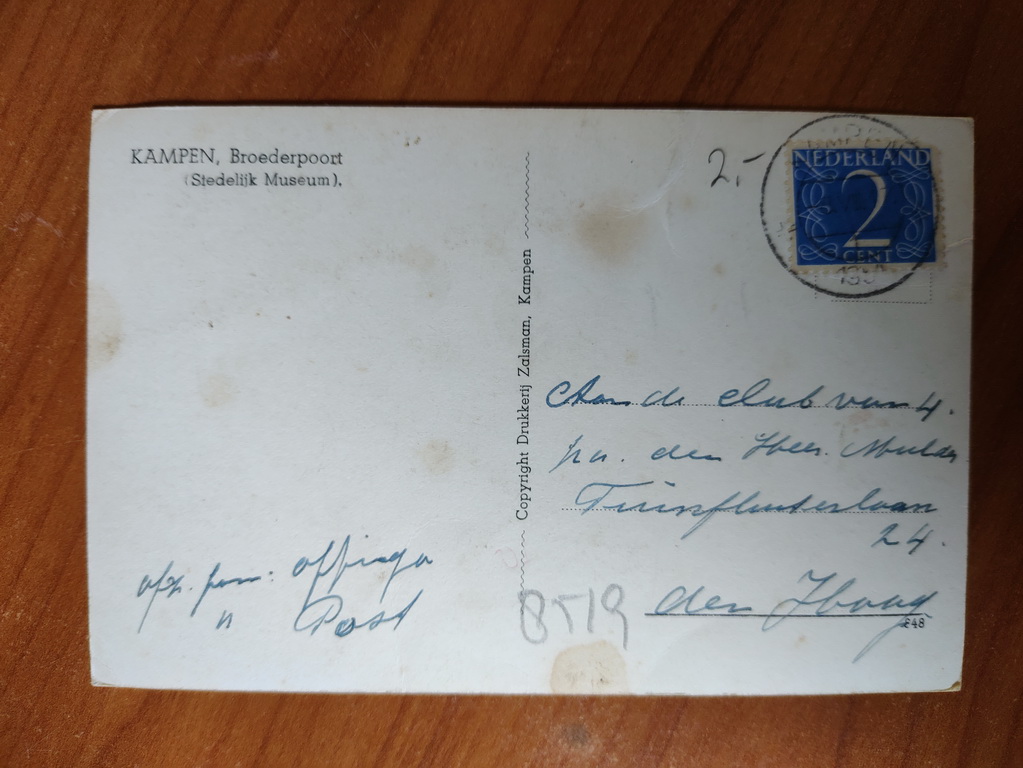 KAMPEN, Broederpoort
(Stedelijk Museum).
Copyright Drukkerij Zalsman, Kampen
2,-
NEDERLAND
2
CENT
Aan de club van 4.
p/a. den Heer. Mulder
24.
den Haag
afz. fam: Offinga
" Post
8519